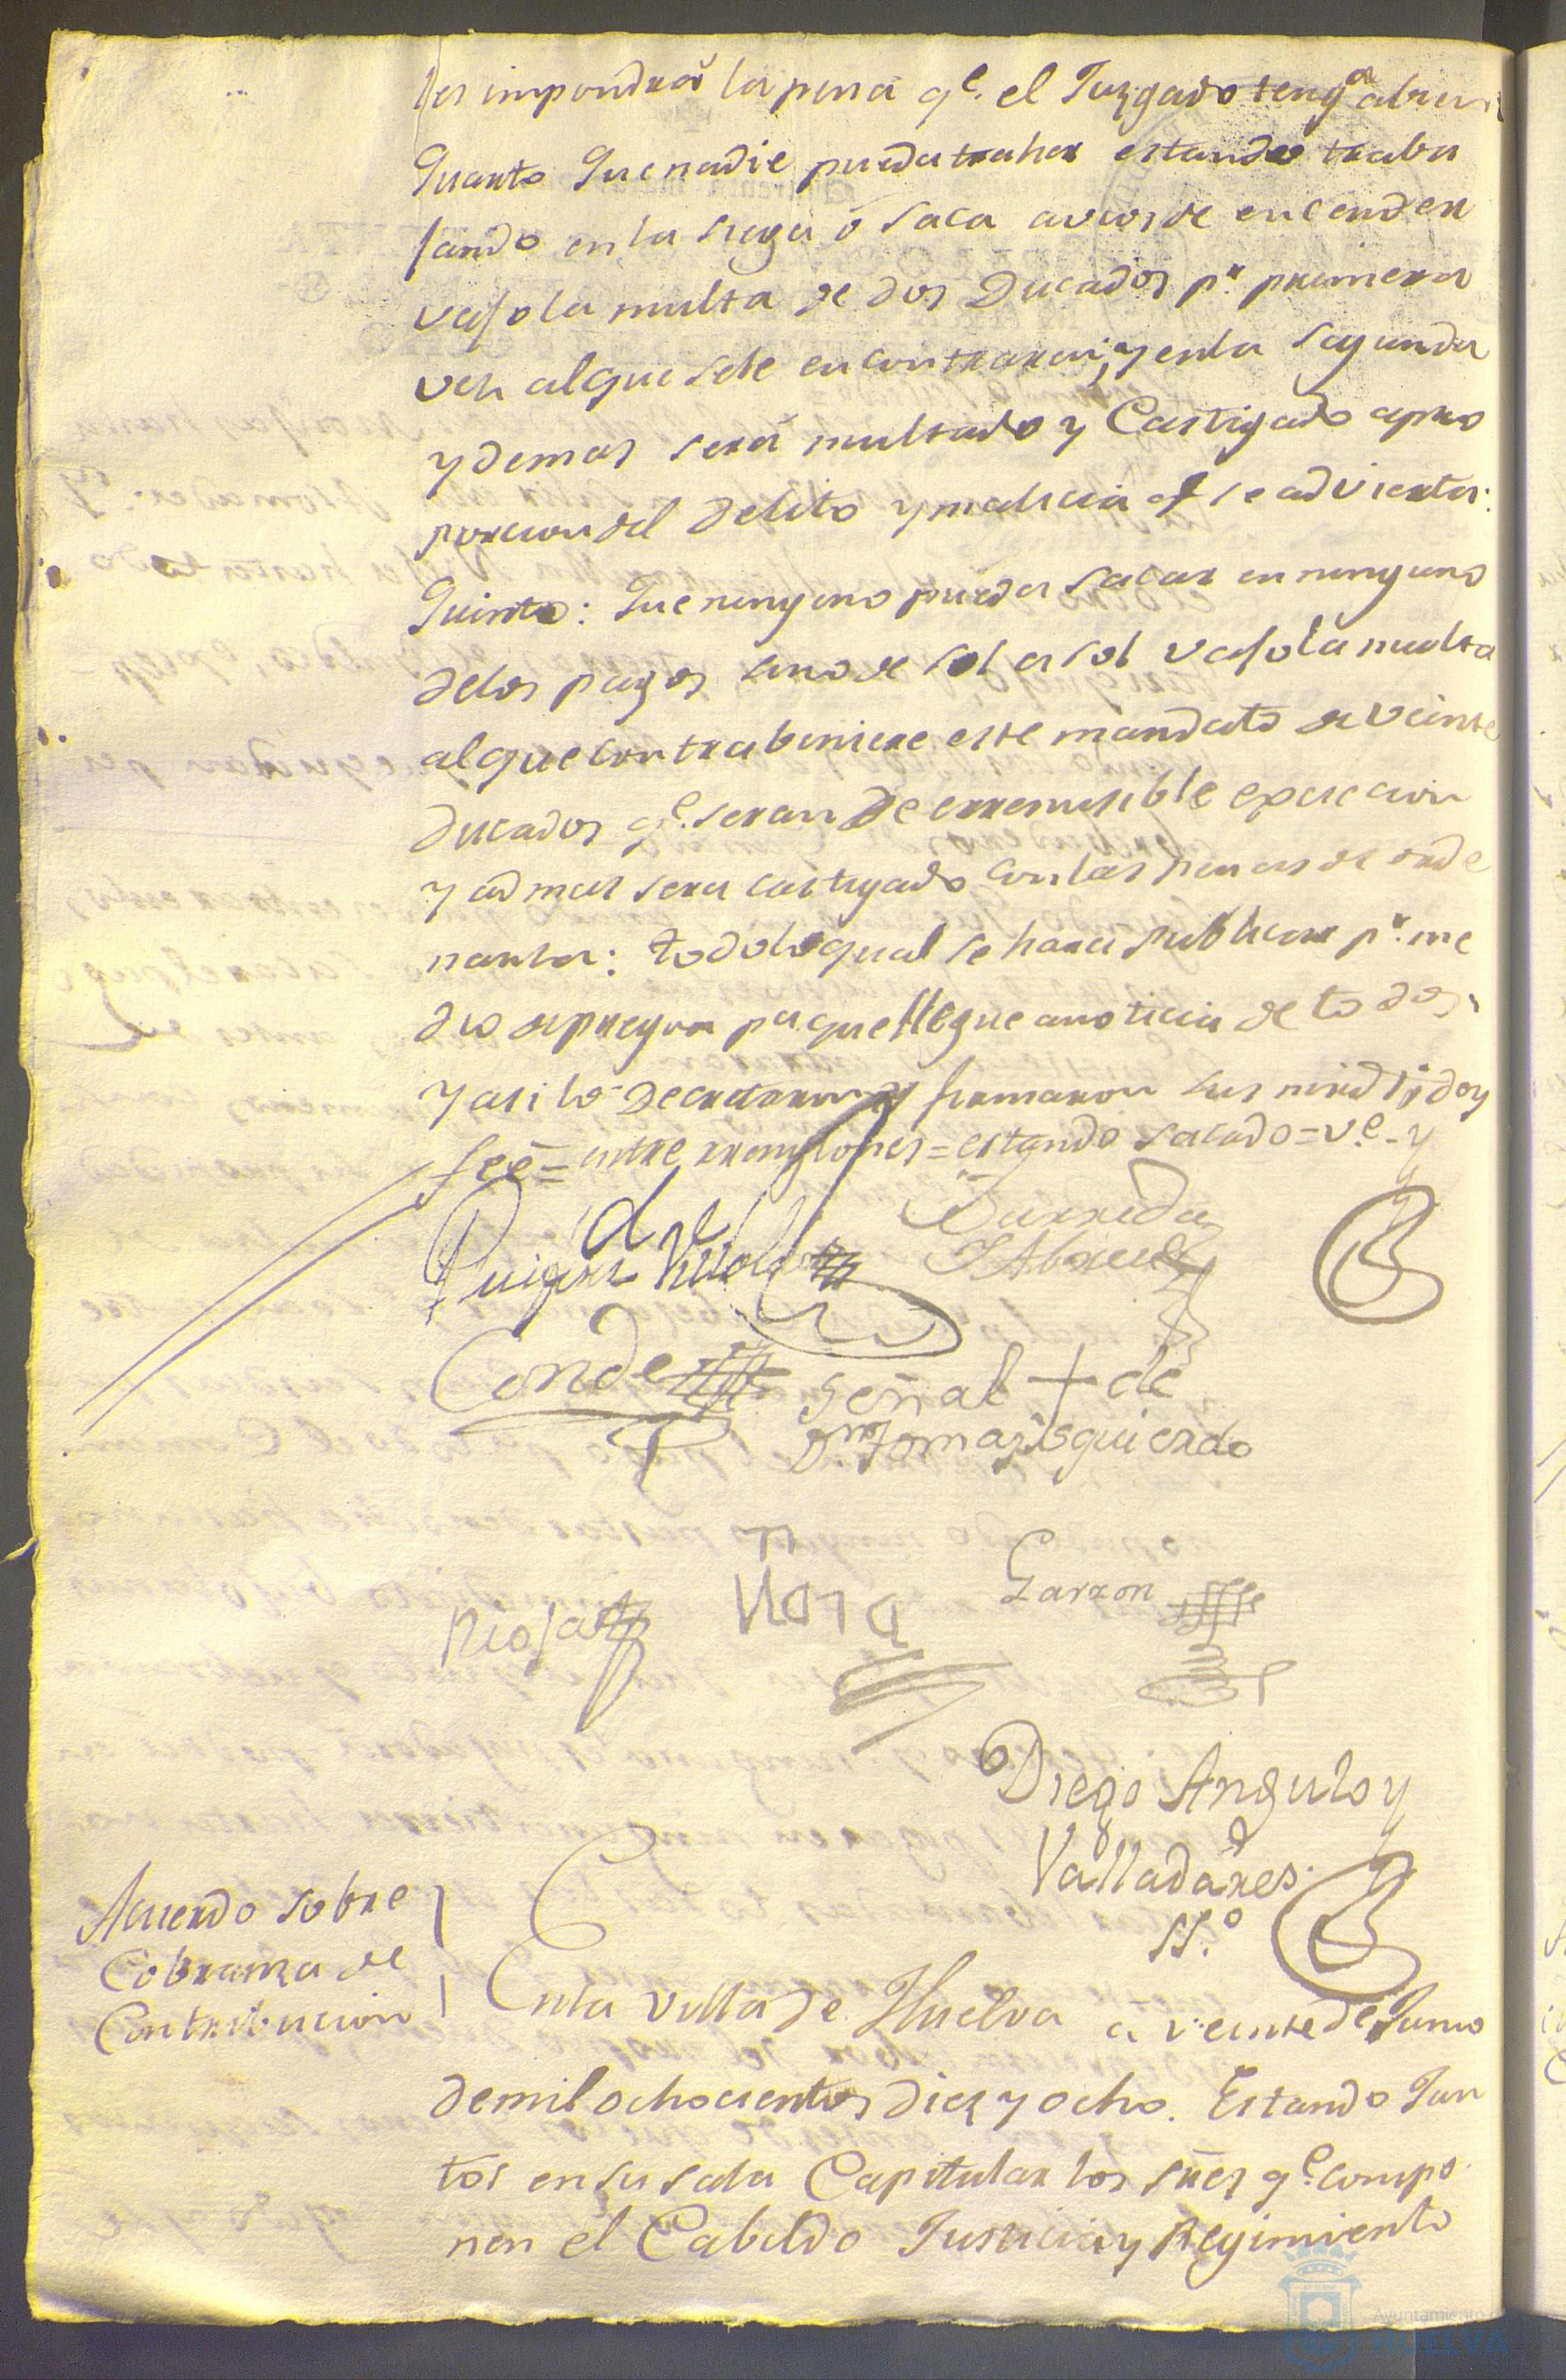 les impondrá la pena q.e el Juzgado tenga abien
Quarto Que nadie pueda traher estando traba
jando en la siega ó saca avios de encender
vajo la multa de dos Ducados p.r primera
ves al que sele encontraren; y enla segunda
y demas será multado y Castigado apro
porcion del delito y malicia q.e se advierta:
Quinto: Que ninguno pueda sacar en ninguno
delos pagos sino de sol a sol vajo la multa
al que contrabiniere este mandato de veinte
ducados q.e seran de erremisible exaccion
y ad mas sera castigado con las penas de orde
nanza: todo lo qual se hara publicar p.r me
dio de pregon pa. que llegue a noticia de todos,
y asi lo Decretaron y firmaron sus mrds doy
feé = entre rrenglones = estando sacado = v.e - y
Barreda
Conde
Señal + de
D.n Tomas Isquierdo
Rioja
Mora
Garzon
Diego Angulo y
Valladares.
SS.o
Acuerdo sobre
Cobranza de
Contribucion
Enla villa de Huelva á veinte de Junio
de mil ochocientos diez y ocho. Estando Jun
tos en su sala Capitular los sres q.e compo
nen el Cabildo Justicia y Regimiento
Ayuntamiento de
HUELVA